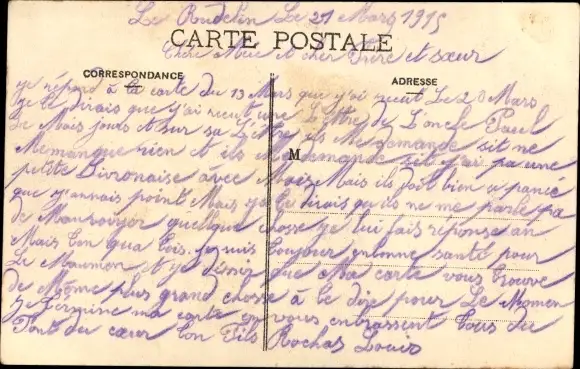 Le Rudelin Le 21 Mars 1915
CARTE POSTALE
Chère Mère et cher Frère et sœur
CORRESPONDANCE
ADRESSE
M
je répond à la carte du 13 Mars que j'ai recut Le 20 Mars
je te dirais que j'ai recut une Lettre de L'oncle Paul
Le Mais jours et sur sa Lettre ils Me demande sit ne
Memanque rien et ils me demande sit j'ai pa une
petite Livronaise avec Mois Mais ils doit bien a pancé
que j'annais point Mais je te dirais qu'ils ne me parle pa
de Manvoiyer quelque chosse je lui fais réponse an
Mais ton qua tois je suis toujour enbonne santé pour
Le Moumen et je désir que Ma carte vous trouve
de Même plus grand chosse à te dire pour Le Momen
je termine ma carte en vous enbrassent tous du
Font du cœur ton Fils Rochas Louis